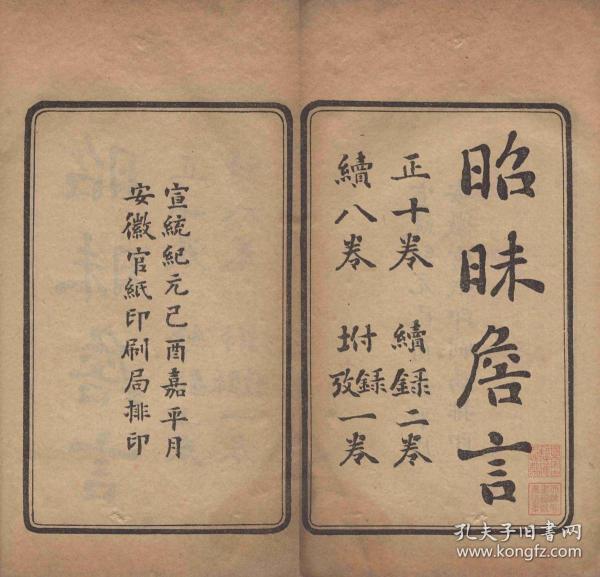 昭昧詹言
正十卷 續錄二卷
續八卷 坿錄攷一卷
宣統紀元己酉嘉平月
安徽官紙印刷局排印
孔夫子旧书网
www.kongfz.com